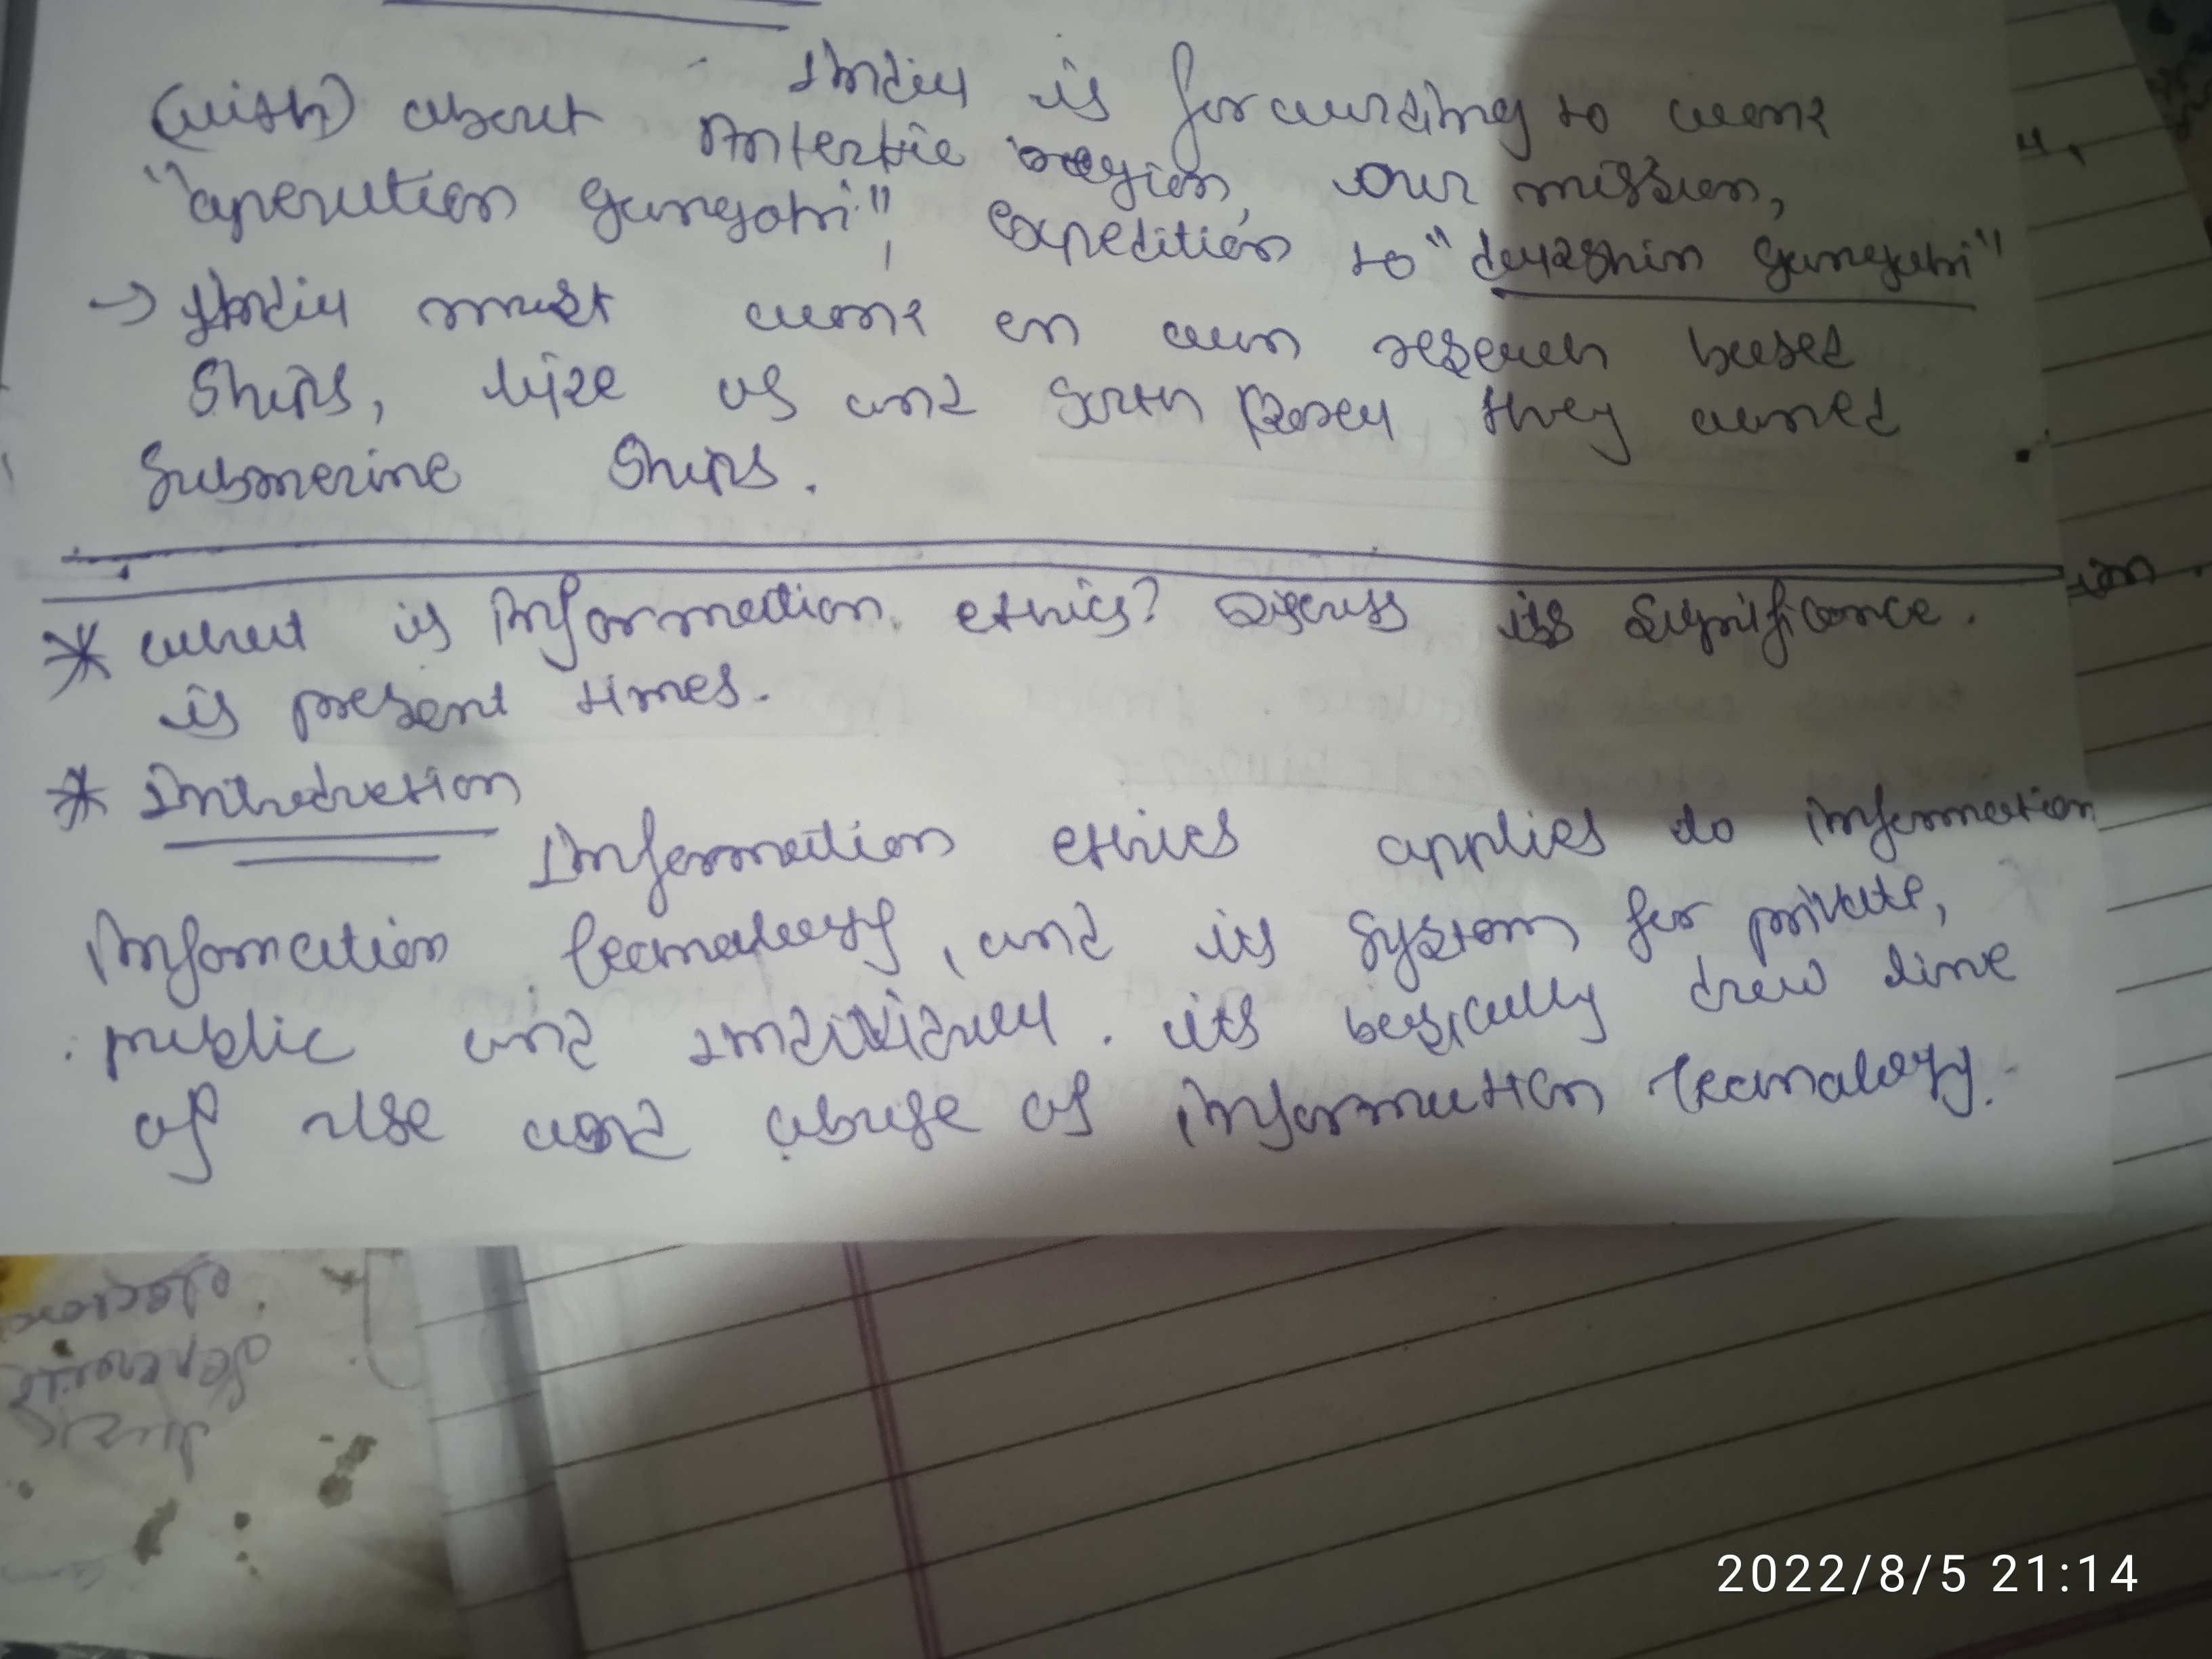 India is forwarding to work
(with) about Antertic region, our mission,
"operation gangotri", expedition to "dakshin gangotri"
→ India must work on own reserch based
Ships, like US and South Korea they owned
Submerine Ships.
* what is information ethics? Discuss its significance.
is present times.
* Introduction
Information ethics applies to information
infomation technology, and its system for private,
public and individual. its basically draw line
of use and abuse of information technology.
2022/8/5 21:14